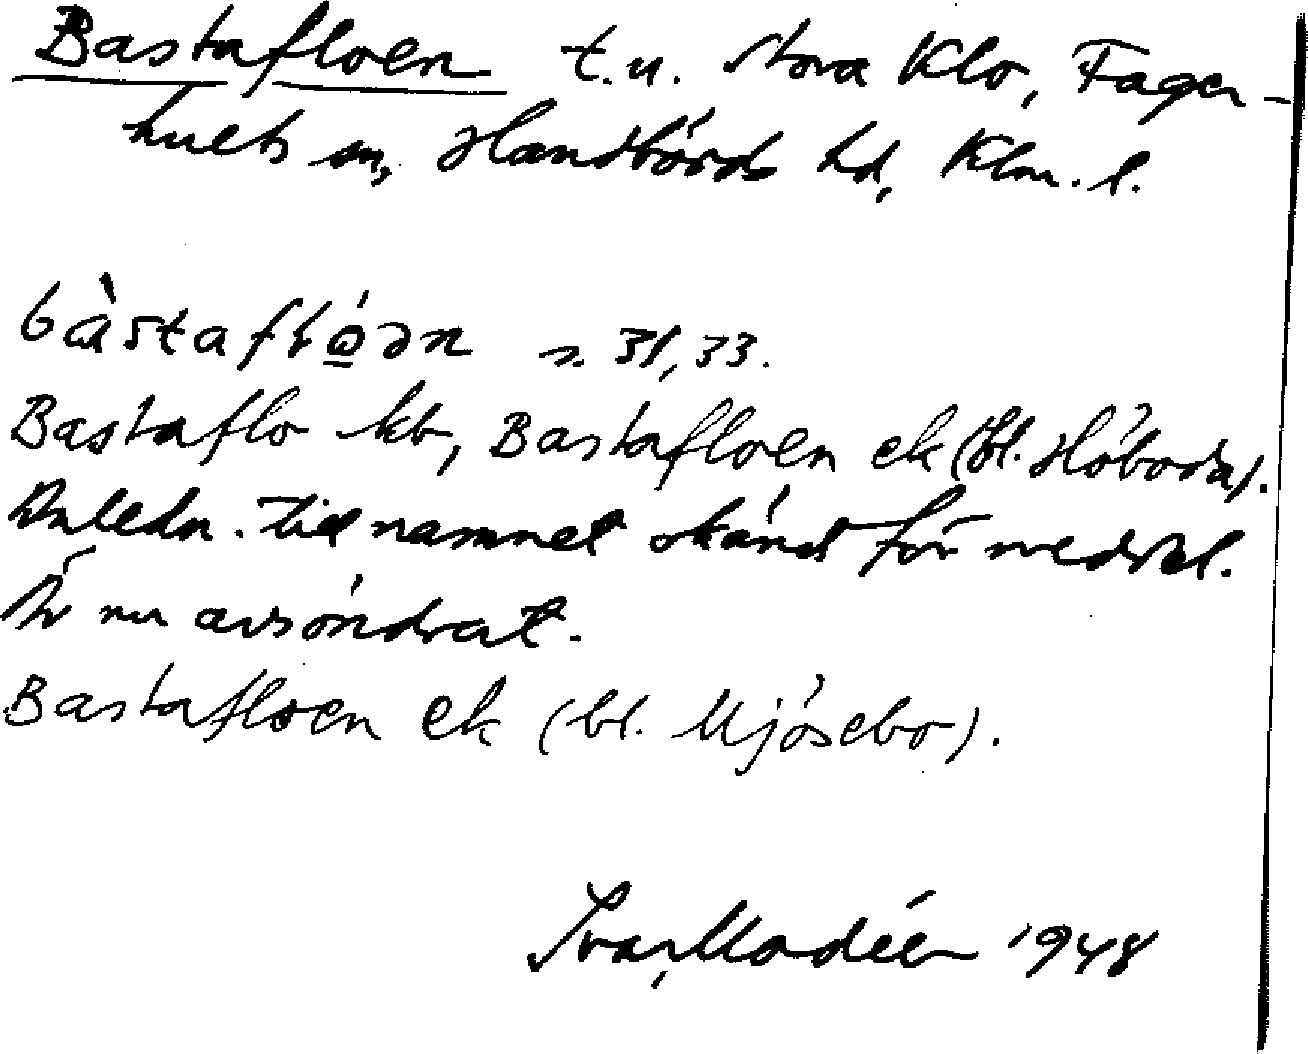 Bastafloen t.u. Stora Klo, Fager-
hults sn, Handbörds hd, Klm. l.
bàstaflo̱ən s. 31, 33.
Bastaflo kb, Bastafloen ek (bl. Höboda).
Anledn. till namnet okänd för medd.
Är nu avsöndrat.
Bastafloen ek (bl. Mjösebo).
Ivar Modéer 1948